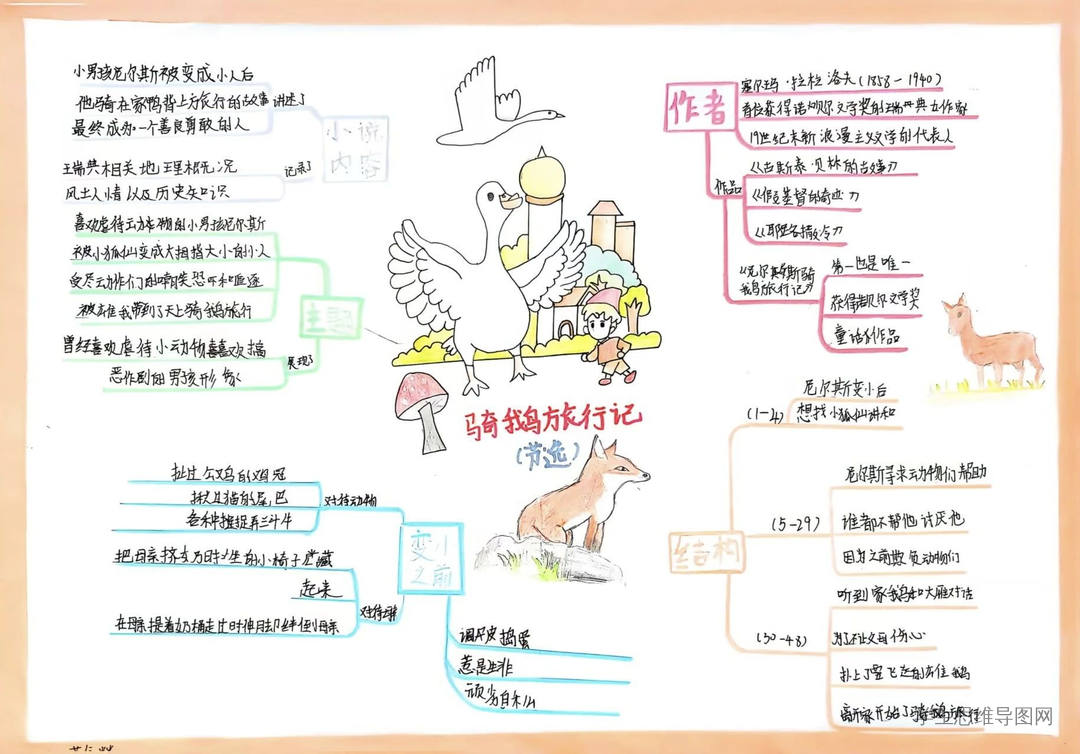 小男孩尼尔斯被变成小人后
他骑在家鸭背上旅行的故事 讲述了
最终成为一个善良勇敢的人
小说
内容
瑞典相关地理概况
记录了
风土人情以及历史知识
喜欢虐待动物的小男孩尼尔斯
被小狐仙变成大拇指大小的小人
受尽动作们的嘲笑恐吓和追逐
被雄我带到了天上骑鹅旅行
主题
展现了
曾经喜欢虐待小动物喜欢搞
恶作剧的男孩形象
作者
塞尔玛·拉格洛夫(1858-1940)
首位获得诺贝尔文学奖的瑞典女作家
19世纪末新浪漫主义文学的代表人
作品
《古斯泰·贝林的故事》
《假基督的奇迹》
《耶路撒冷》
《尼尔斯骑
鹅旅行记》
第一也是唯一
获得诺贝尔文学奖
童话作品
骑鹅旅行记
(节选)
扯过公鸡的鸡冠
揪过猫的尾巴
对待动物
各种捉弄三头牛
变小
之前
把母亲挤奶时坐的小椅子偷藏
起来
在母亲提着奶桶走过时伸脚绊倒母亲
调皮捣蛋
惹是生非
顽劣自私
结构
(1-4)
尼尔斯变小后
想找小狐仙讲和
(5-29)
尼尔斯寻求动物们帮助
谁都不帮他讨厌他
因为之前欺负动物们
(30-48)
听到家鹅和大雁对话
为了不让父母伤心
扑上了要飞走的雄鹅
离开家开始了骑鹅旅行
思维导图网